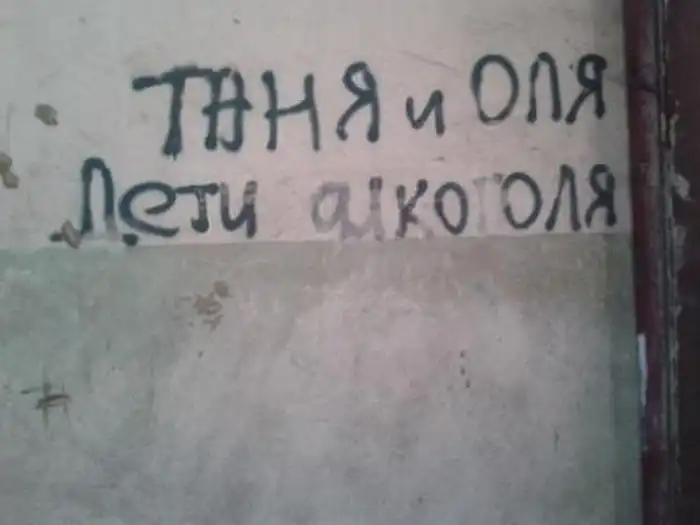 ТАНЯ и ОЛЯ
Дети алкоголя